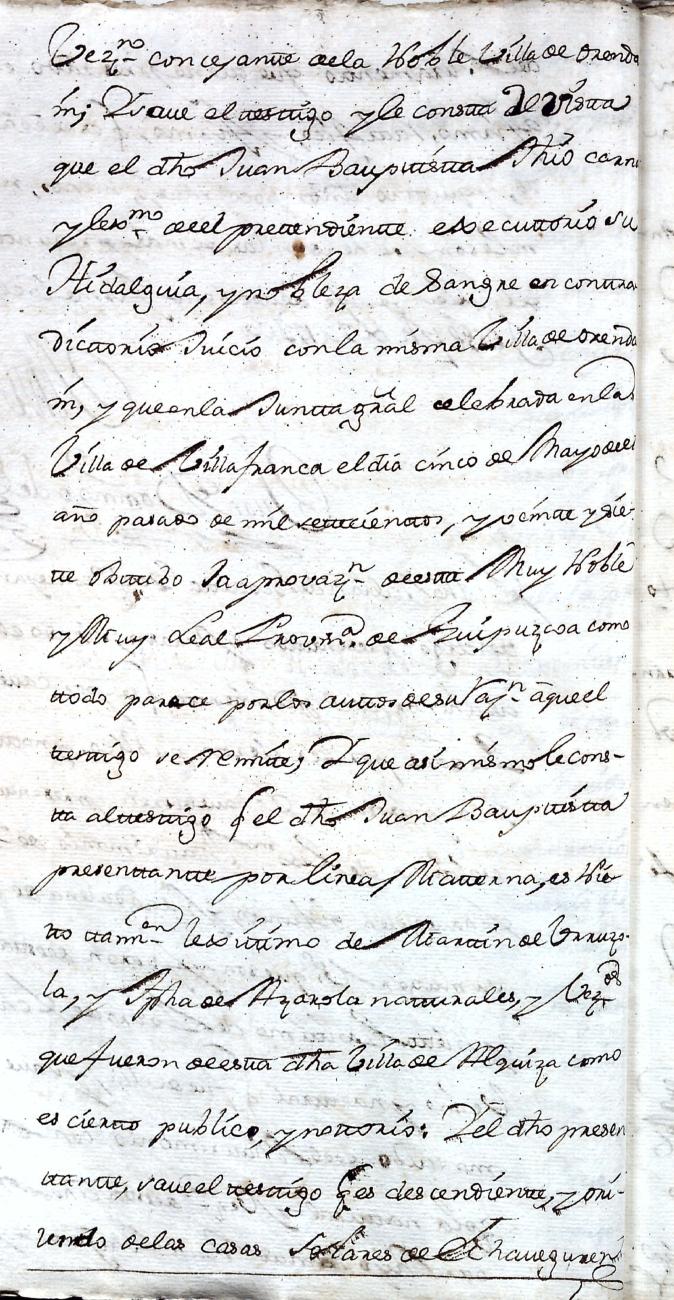 Vez.no conceyante dela Noble Villa de Orenda
in; Y save el testigo y le consta de vista
que el dho Juan Bauptista Thio carna
y lexmo de el pretendiente executtorio su
Hidalguia, y nobleza de Sangre en conttra
dictorio Juicio con la misma Villa de Orenda
in, y que en la Juntta gral celebrada en la
Villa de Villafranca el dia cinco de Mayo de el
año pasado de mil settecienttos, y veinte y sie-
te obtubo la aprovaz.n de esta Muy Noble
y Muy Leal Provin.a de Guipuzcoa como
ttodo parece por los auttos de su raz.n a que el
testigo se remite; Y que asi mismo le cons-
ta al testigo q el dho Juan Bauptista
presenttante por linea Materna, es Nie
to ttamn.en lexitimo de Martin de Urruzo-
la, y Jpha de Azarola natturales, y Vez.os
que fueron de esta dha Villa de Alquiza como
es cierto publico, y nottorio: Y el dho presen
ttante, save el testigo q es descendiente, y ori-
undo de las casas Solares de Echaveguren